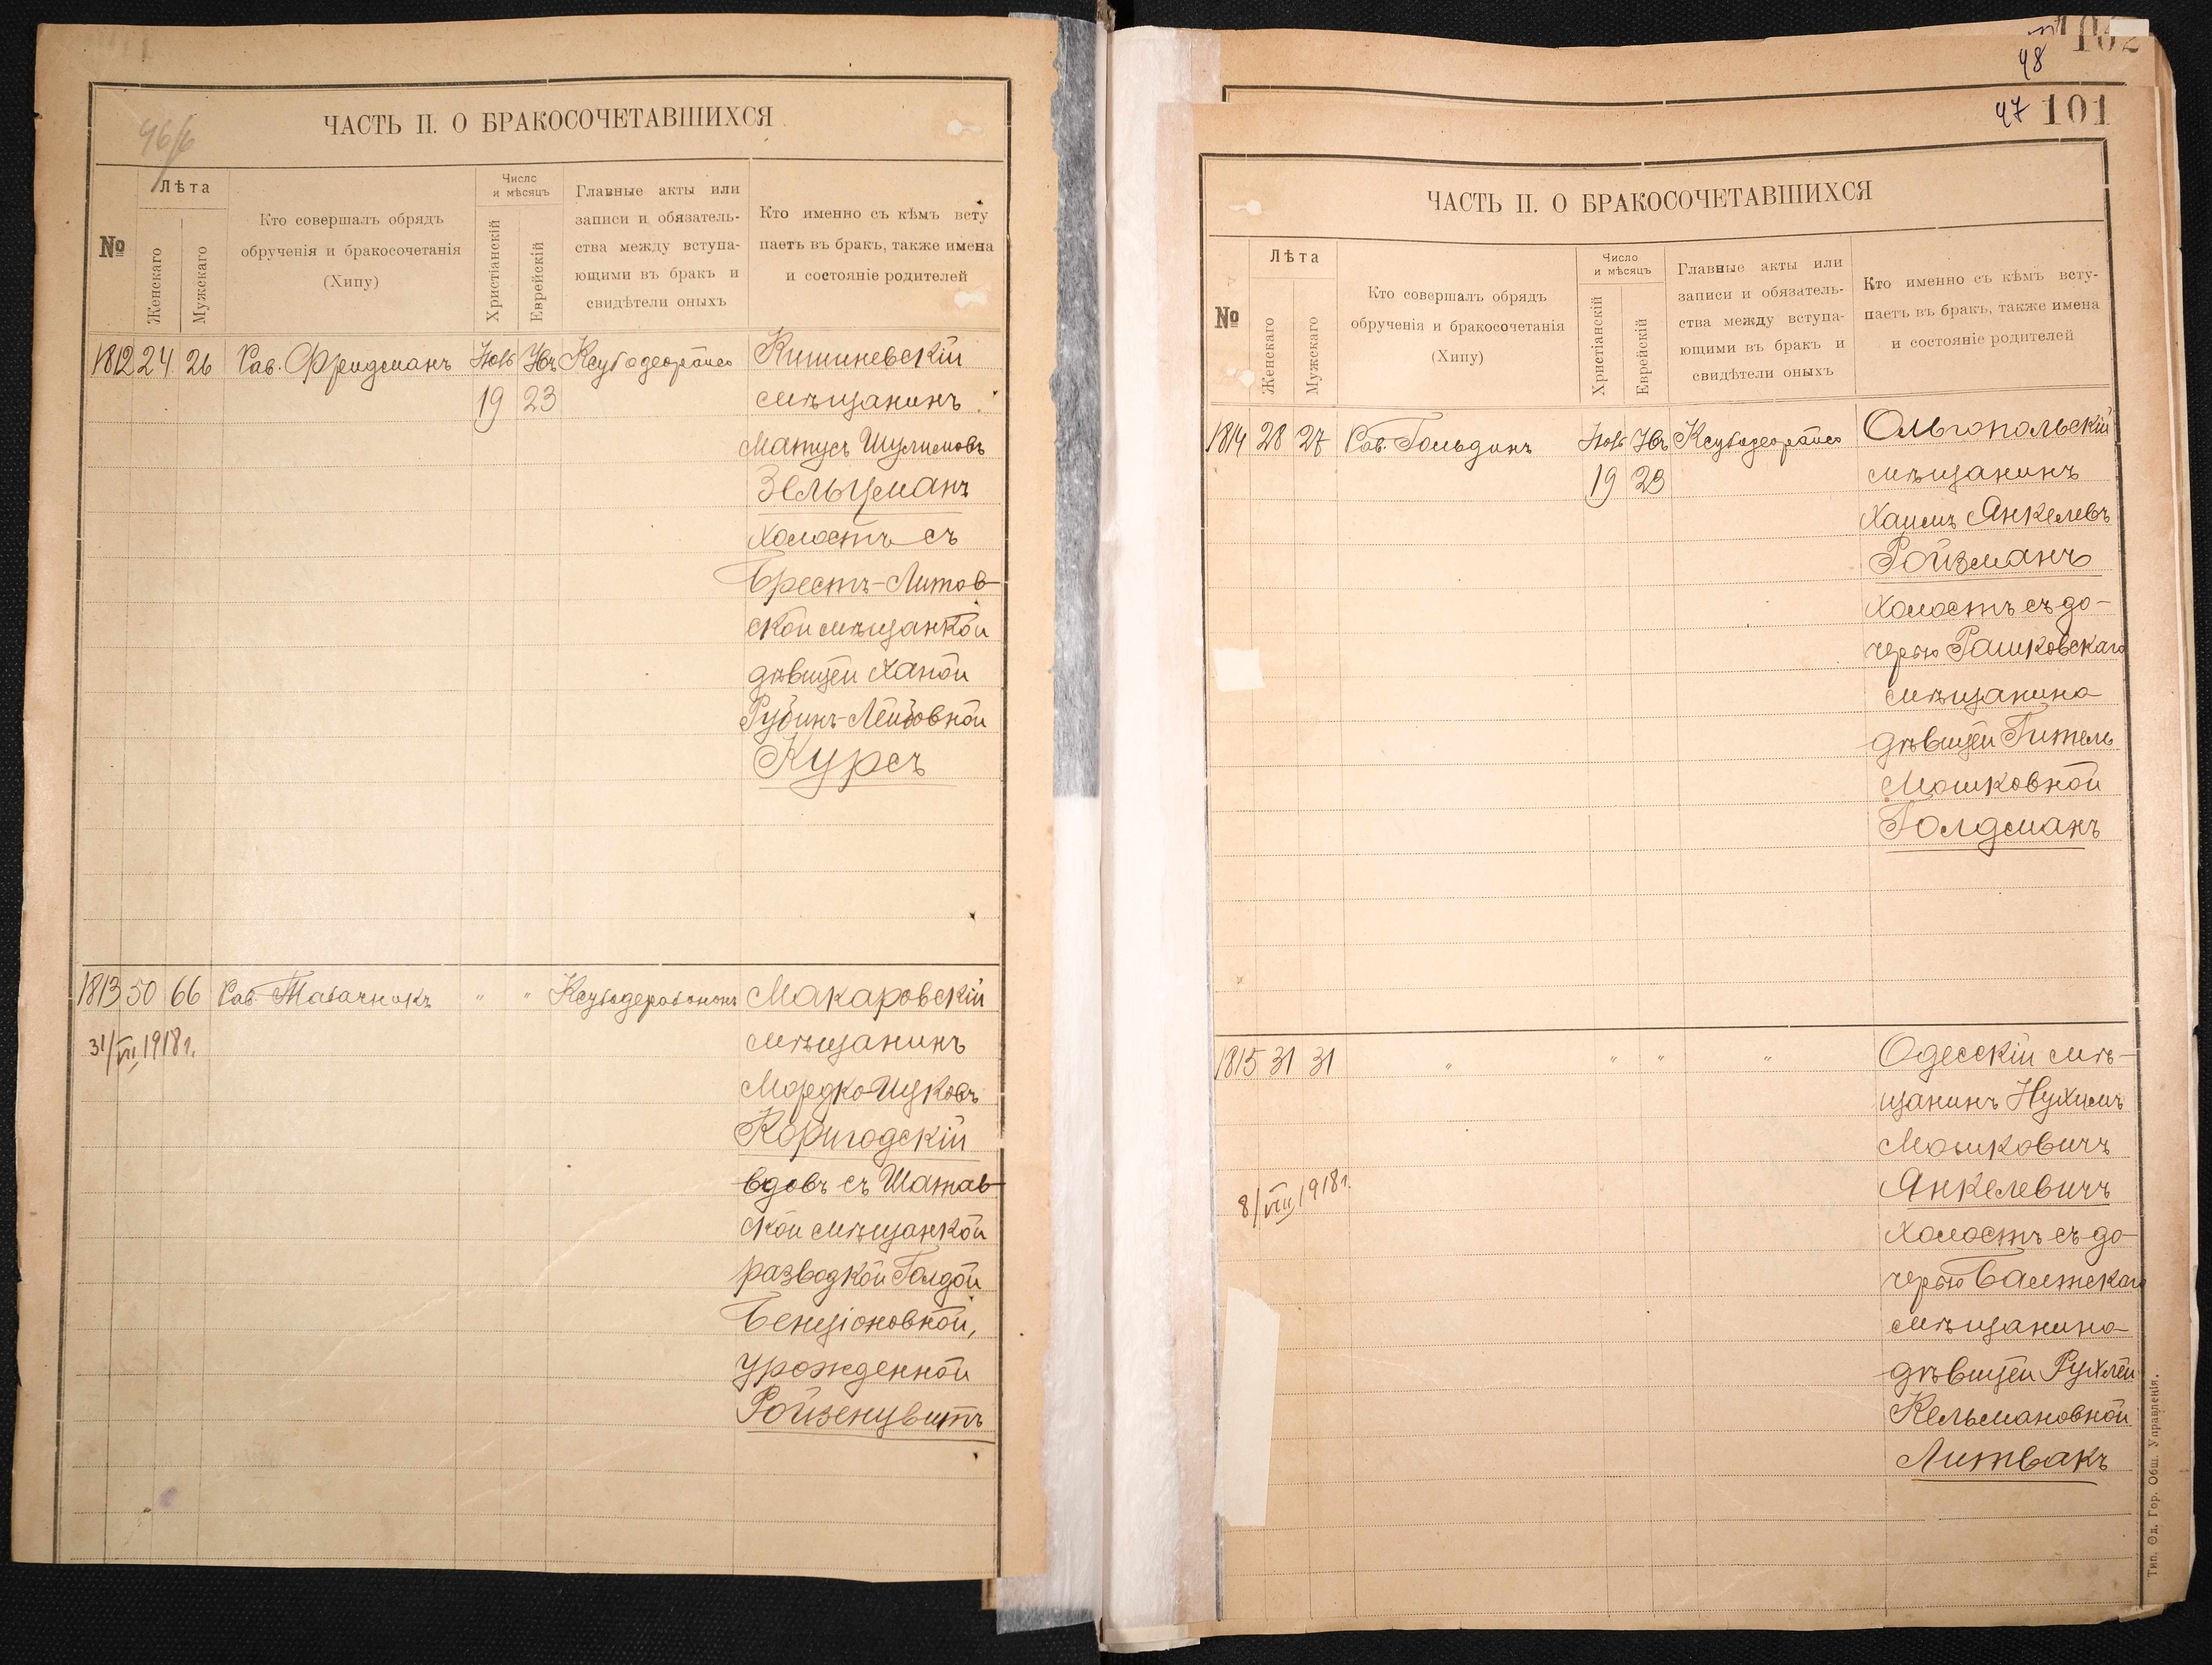 46/б
ЧАСТЬ II. О БРАКОСОЧЕТАВШИХСЯ
№
Лѣта
Женскаго
Мужскаго
Кто совершалъ обрядъ
обрученія и бракосочетанія
(Хипу)
Число
и мѣсяцъ
Христіанскій
Еврейскій
Главные акты или
записи и обязатель-
ства между вступа-
ющими въ бракъ и
свидѣтели оныхъ
Кто именно съ кѣмъ всту
паетъ въ бракъ, также имена
и состояніе родителей
1812 24 26 Рав. Фридманъ Нояб
19 23
Кишиневскій
мѣщанинъ
Матусъ Шулимовъ
Зельцманъ
холостъ съ
Брестъ-Литов-
ской мѣщанкой
дѣвицей Ханой
Рубинъ-Лейбовной
Курсъ
1813 50 66 Рав. Табачникъ " "
31/VII 1918 г.
Макаровскій
мѣщанинъ
Мордко Ицковъ
Коригодскій
вдовъ съ Шатав-
ской мѣщанкой
разводкой Голдой
Бенціоновной,
урожденной
Ройзенцвитъ
102
48
47 101
ЧАСТЬ II. О БРАКОСОЧЕТАВШИХСЯ
№
Лѣта
Женскаго
Мужскаго
Кто совершалъ обрядъ
обрученія и бракосочетанія
(Хипу)
Число
и мѣсяцъ
Христіанскій
Еврейскій
Главные акты или
записи и обязатель-
ства между вступа-
ющими въ бракъ и
свидѣтели оныхъ
Кто именно съ кѣмъ всту-
паетъ въ бракъ, также имена
и состояніе родителей
1814 28 27 Рав. Гольдинъ Нояб
19 23
Ольгопольскій
мѣщанинъ
Хаимъ Янкелевъ
Ройзманъ
холостъ съ до-
черью Рашковскаго
мѣщанина
дѣвицей Гитель
Мошковной
Голдманъ
1815 31 31 " " " "
8/VIII 1918 г.
Одесскій мѣ-
щанинъ Нухимъ
Мошковичъ
Янкелевичъ
холостъ съ до-
черью Балтскаго
мѣщанина
дѣвицей Рухлей
Кельмановной
Литвакъ
Тип. Од. Гор. Общ. Управленія.